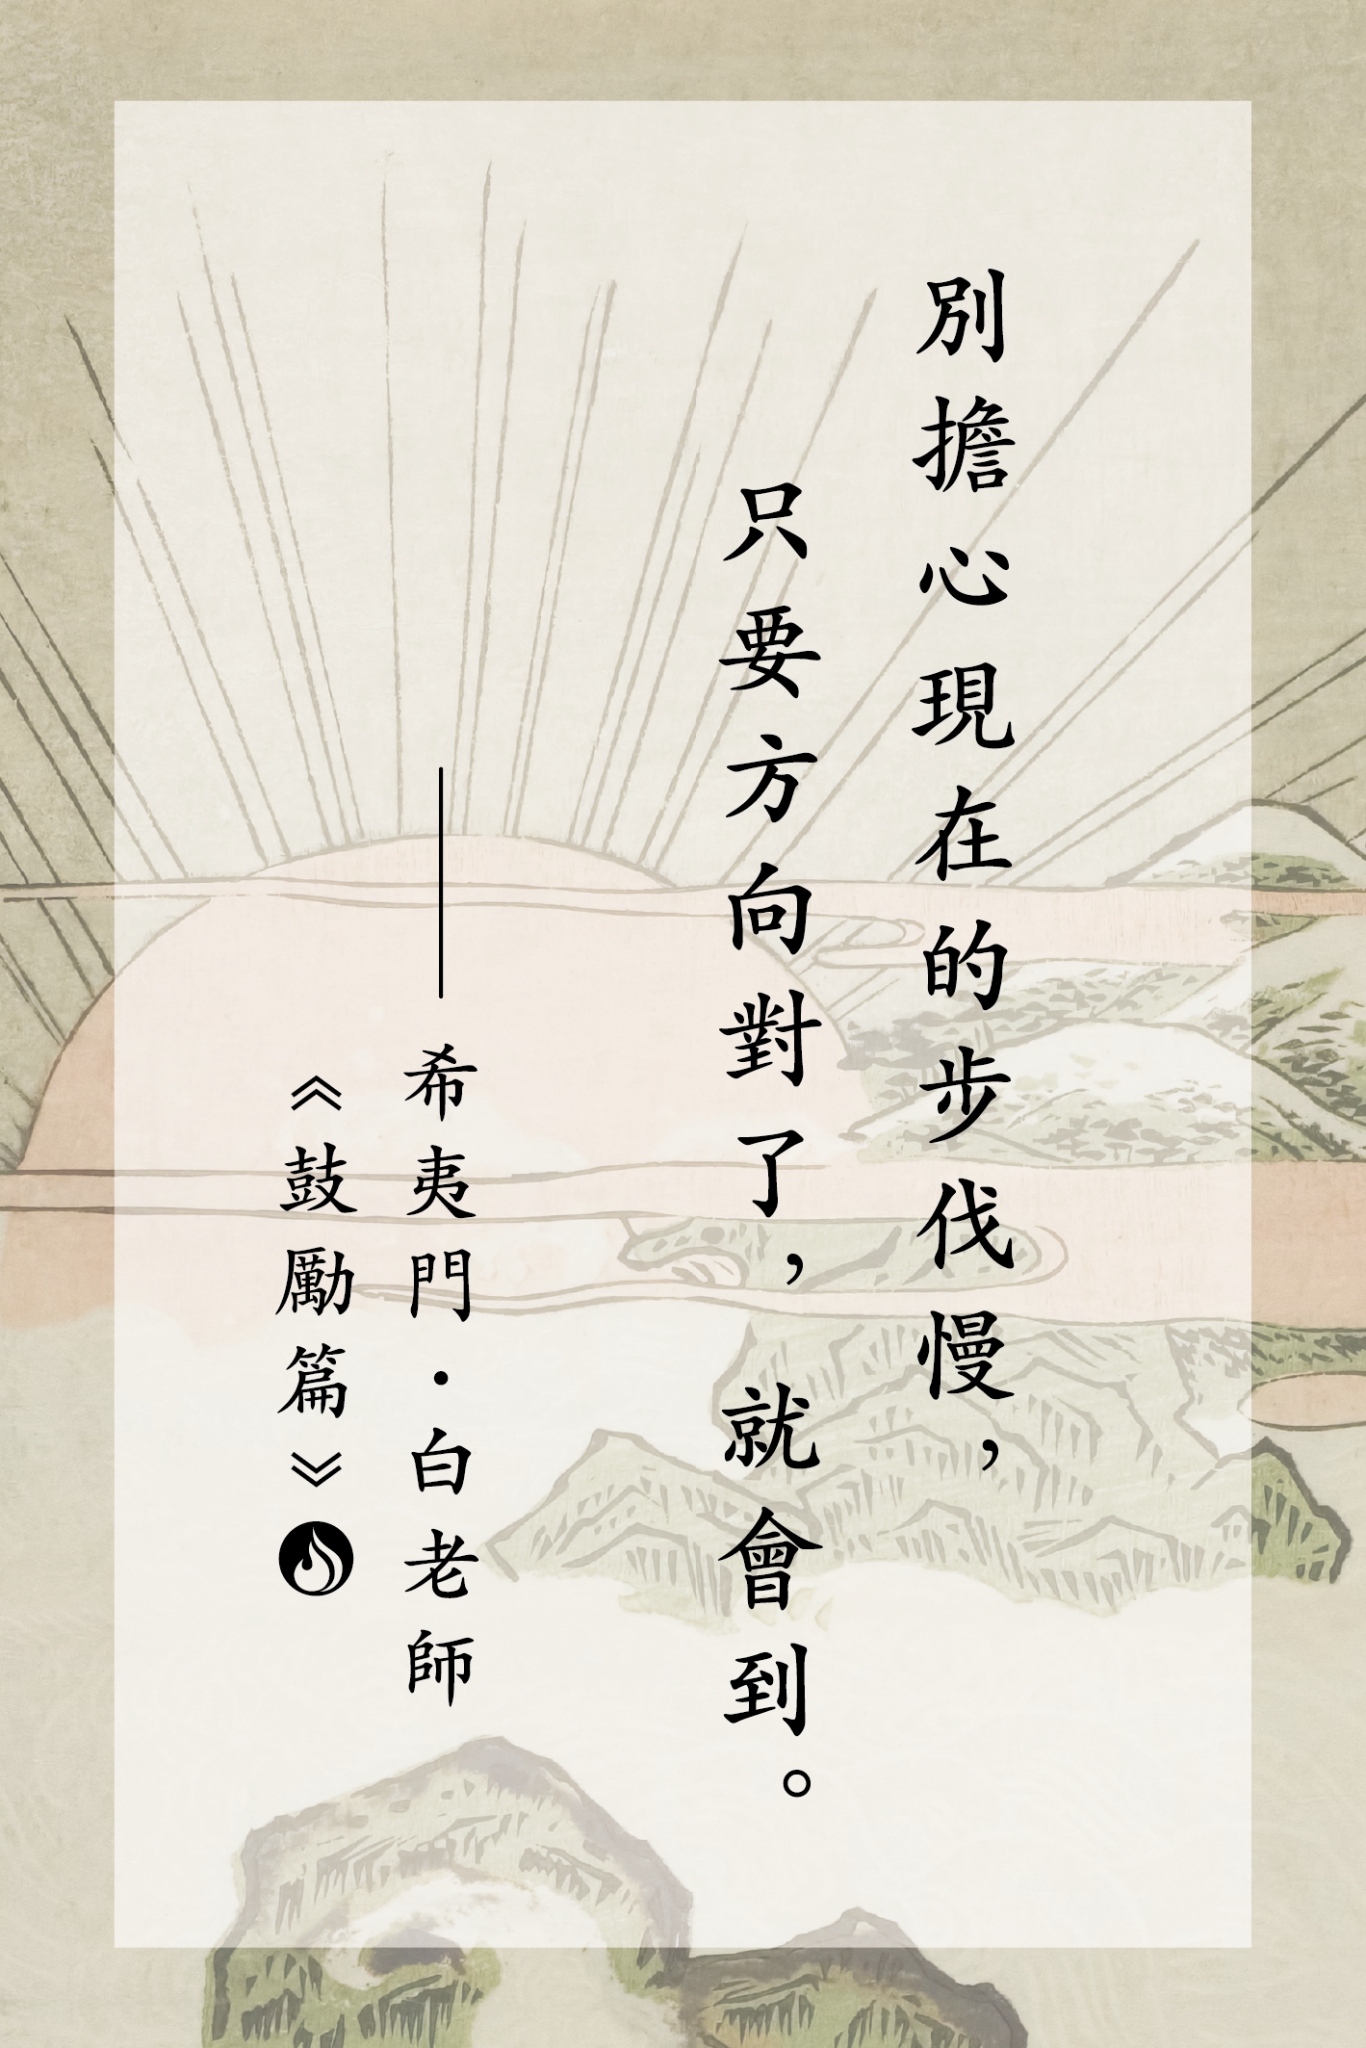 別擔心現在的步伐慢，
只要方向對了，就會到。
——希夷門·白老師
《鼓勵篇》